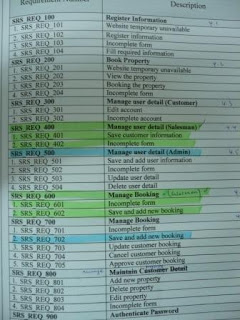 Requirement Number Description
SRS_REQ_100 Register Information
1. SRS_REQ_101 Website temporary unavailable
2. SRS_REQ_102 Register information
3. SRS_REQ_103 Incomplete form
4. SRS_REQ_104 Fill required information
SRS_REQ_200 Book Property
1. SRS_REQ_201 Website temporary unavailable
2. SRS_REQ_202 View the property
3. SRS_REQ_203 Booking the property
4. SRS_REQ_204 Incomplete form
SRS_REQ_300 Manage user detail (Customer) 4.3
1. SRS_REQ_301 Edit account
2. SRS_REQ_302 Incomplete account
SRS_REQ_400 Manage user detail (Salesman)
1. SRS_REQ_401 Save customer information
2. SRS_REQ_402 Incomplete form
SRS_REQ_500 Manage user detail (Admin) 4.5
1. SRS_REQ_501 Save and add user information
2. SRS_REQ_502 Incomplete form
3. SRS_REQ_503 Update user detail
4. SRS_REQ_504 Delete user detail
SRS_REQ_600 Manage Booking (Salesman)
1. SRS_REQ_601 Incomplete form
2. SRS_REQ_602 Save and add new booking
SRS_REQ_700 Manage Booking
1. SRS_REQ_701 Incomplete form
2. SRS_REQ_702 Save and add new booking
3. SRS_REQ_703 Update customer booking
4. SRS_REQ_704 Cancel customer booking
5. SRS_REQ_705 Approve customer booking
SRS_REQ_800 Maintain Customer Detail
1. SRS_REQ_801 Add new property
2. SRS_REQ_802 Delete property
3. SRS_REQ_803 Edit property
4. SRS_REQ_804 Incomplete form
SRS_REQ_900 Authenticate Password